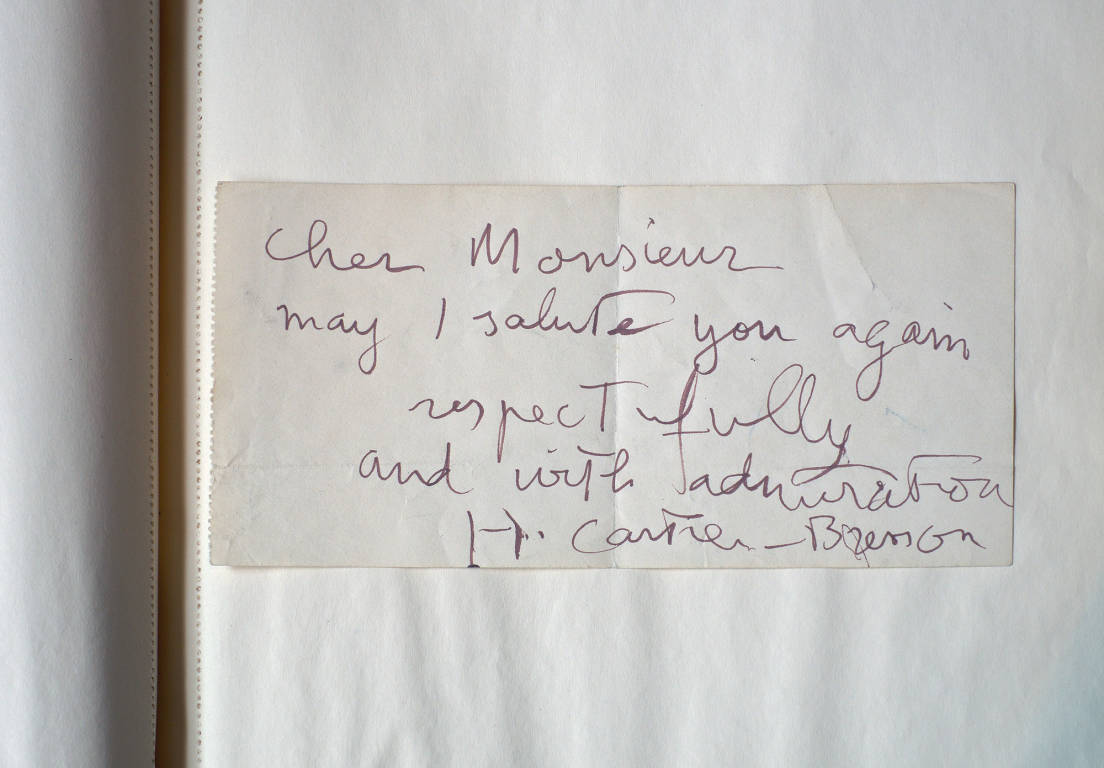 Cher Monsieur
may I salute you again
respectfully
and with admiration
H. Cartier-Bresson